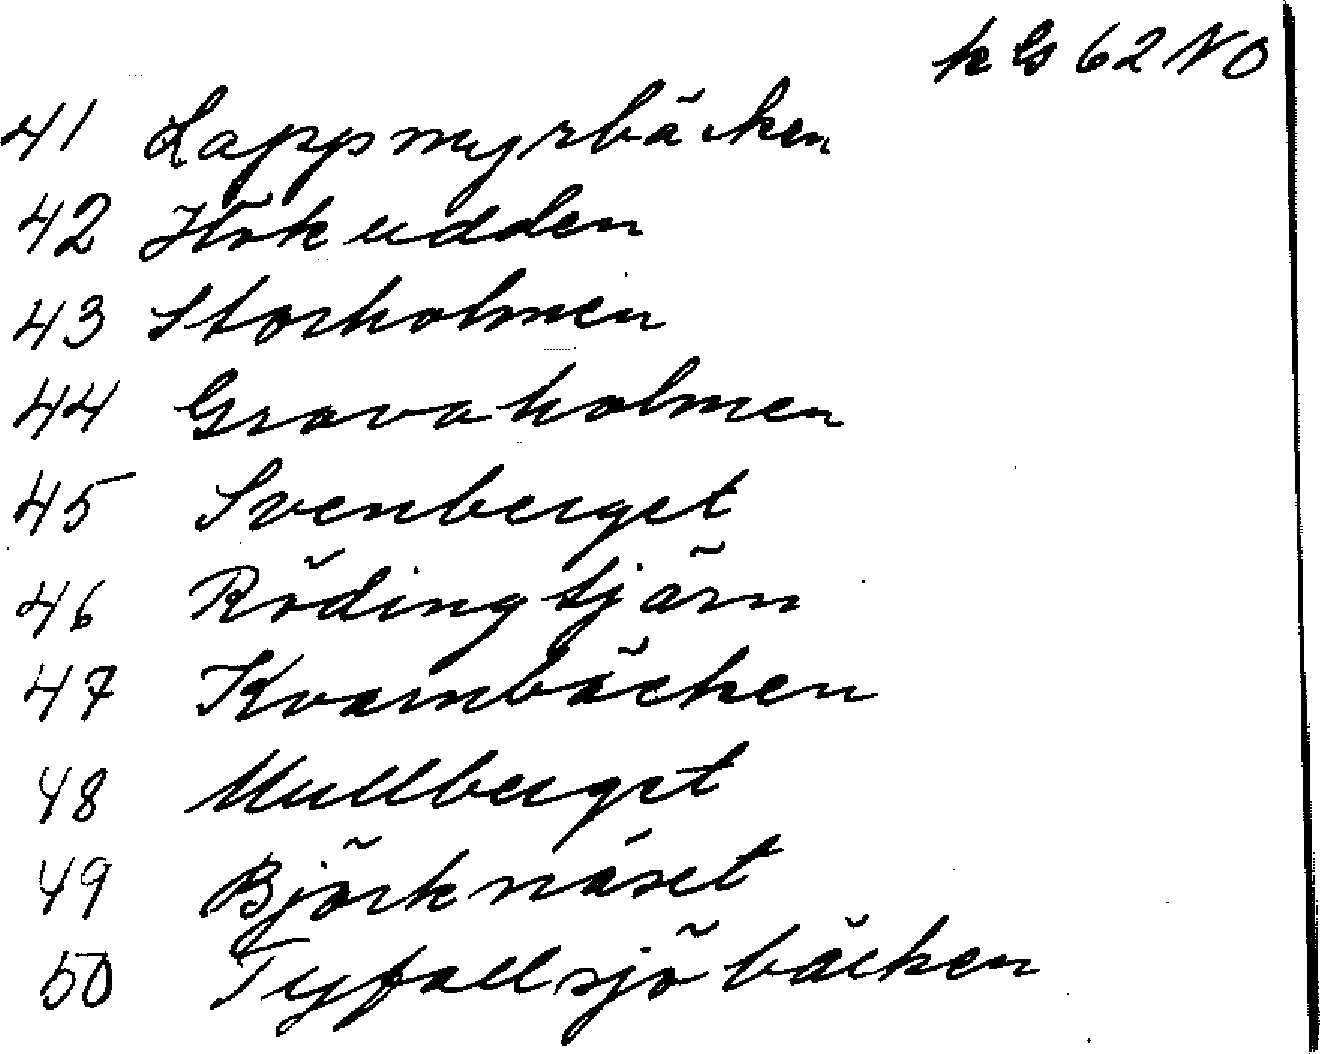 k G 62 NO
41 Lappmyrbäcken
42 Hökudden
43 Storholmen
44 Gravaholmen
45 Svenberget
46 Rödingtjärn
47 Kvarnbäcken
48 Mullberget
49 Björknäset
50 Tyfallsjöbäcken